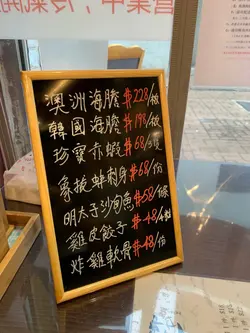 營業中，冷氣開
澳洲海膽 $228/份
韓國海膽 $198/份
珍寶赤蝦 $68/隻
象拔蚌刺身 $68/份
明太子沙甸魚 $58/條
雞皮餃子 $48/4粒
炸雞軟骨 $48/份